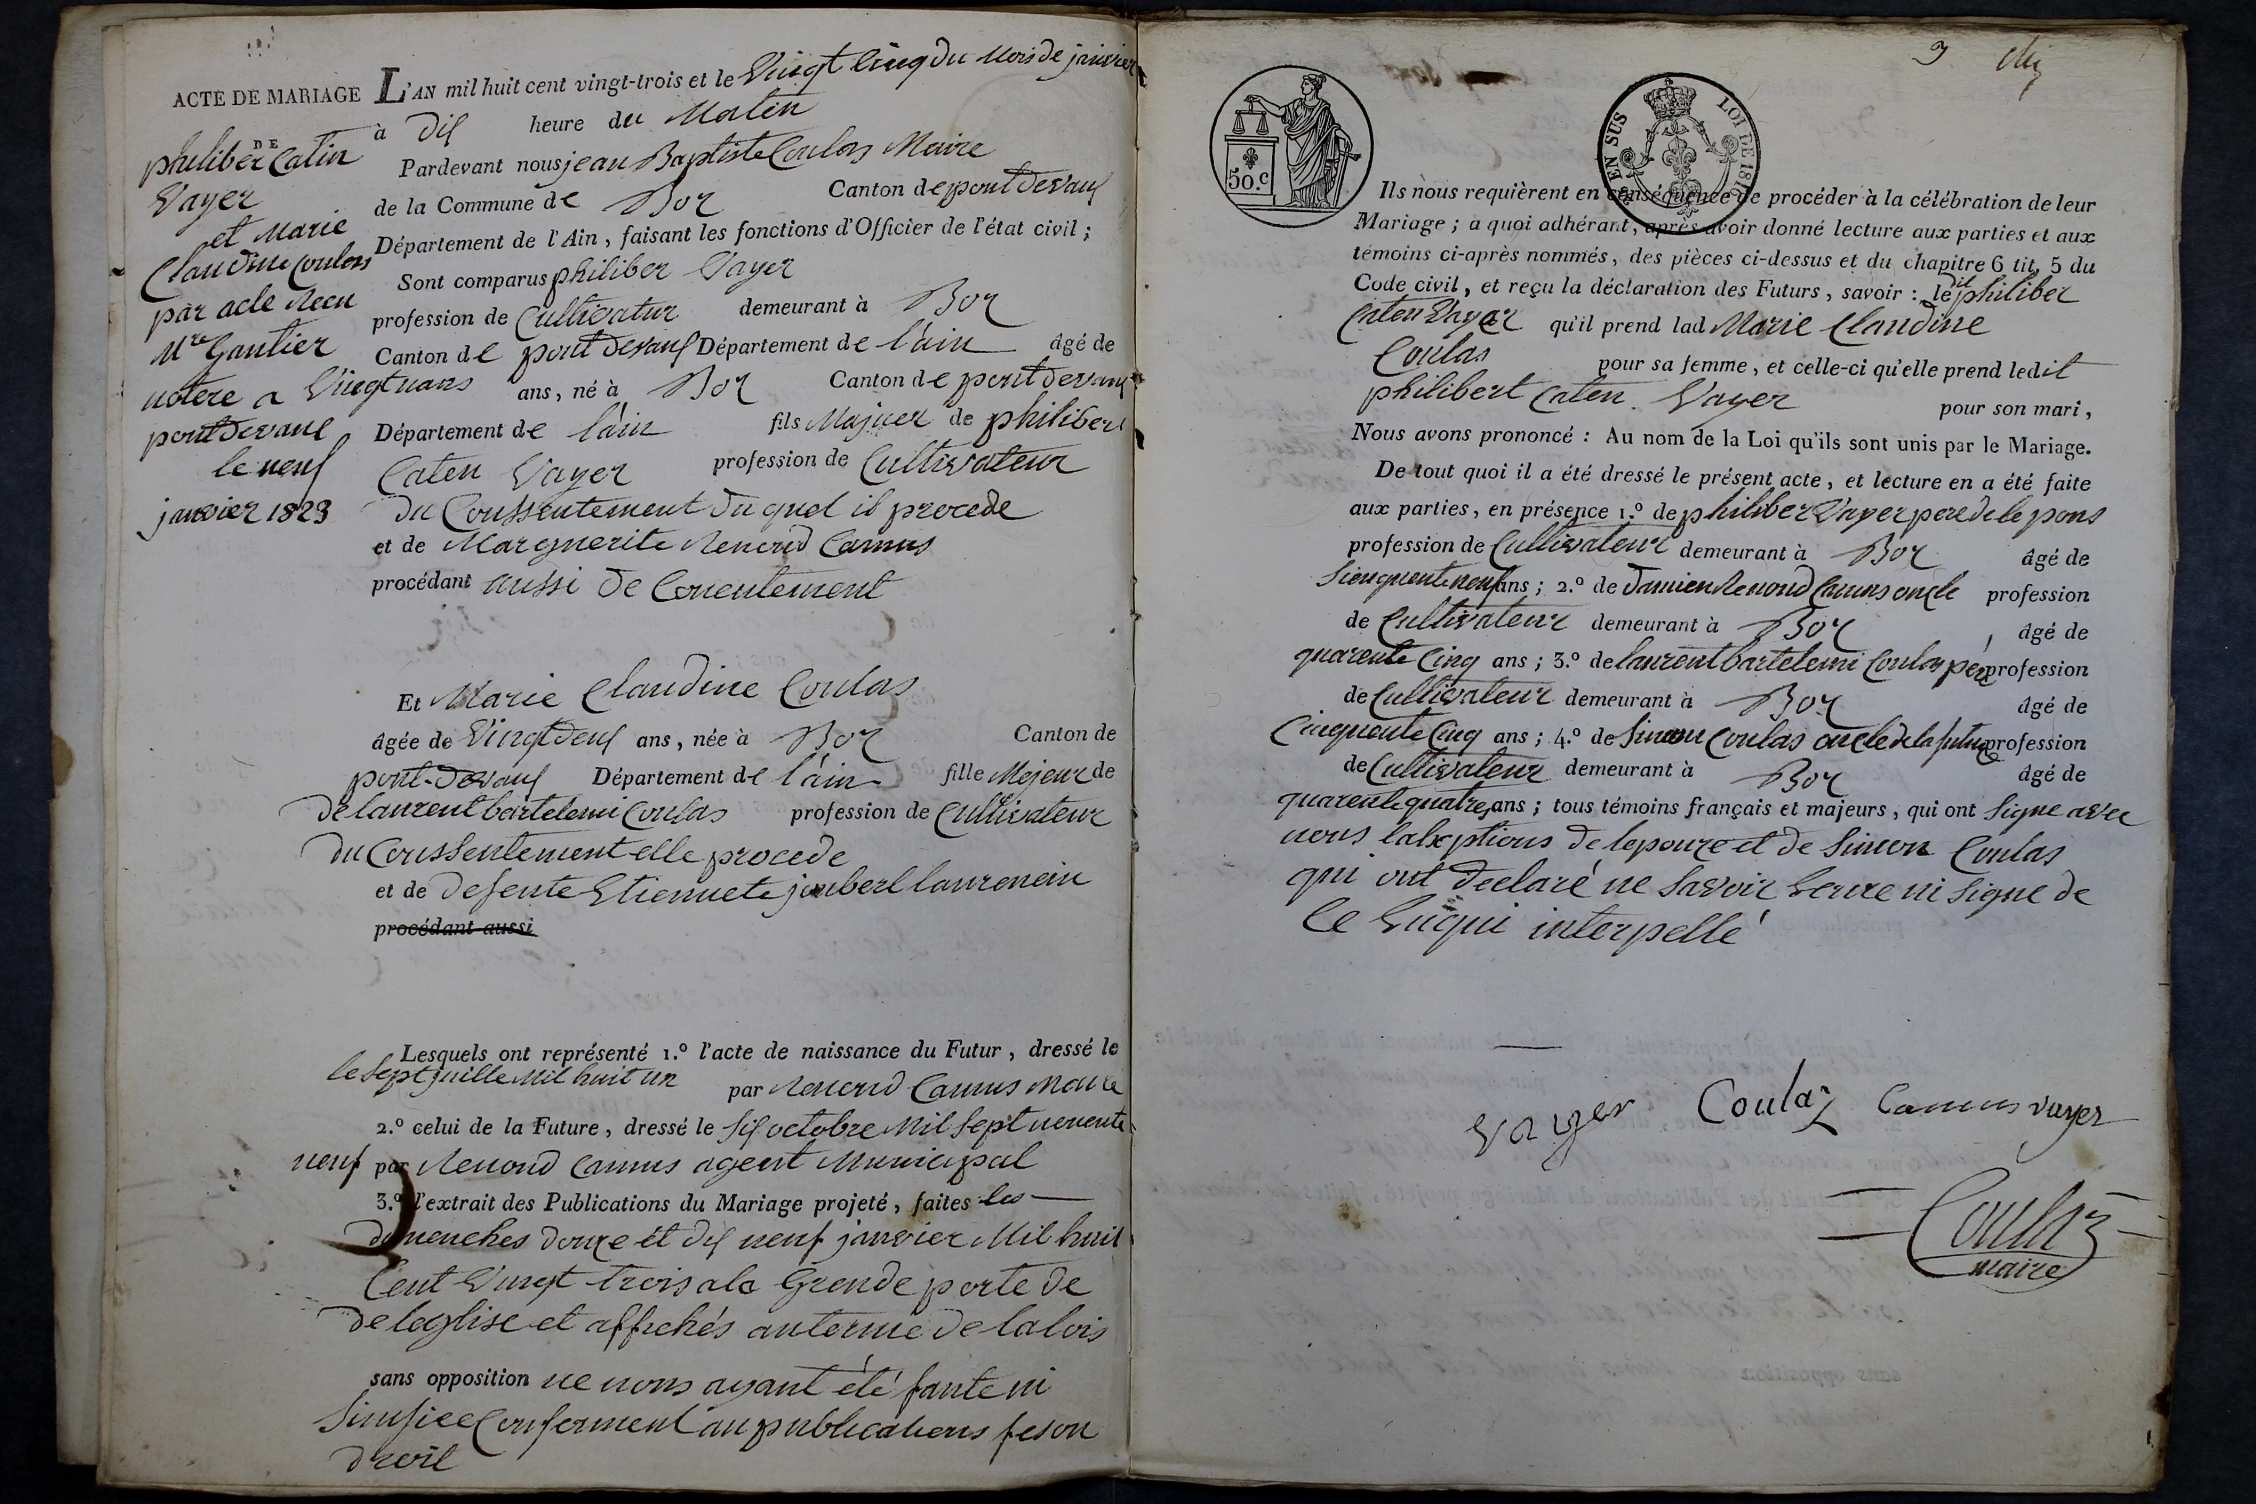 ACTE DE MARIAGE
DE
philiber Catin
Vayer
et Marie
Claudine Coulas
par acte Recu
Mre Gautier
notere a
pontdevaul
le neuf
janvier 1823
L'AN mil huit cent vingt-trois et le Vingt Cinq du Mois de janvier
à dis heure du Maten
Pardevant nous jean Baptiste Coulas Maire
de la Commune de Boz Canton de pont devaus
Département de l'Ain, faisant les fonctions d'Officier de l'état civil;
Sont comparus philiber Vayer
profession de Cultivatur demeurant à Boz
Canton de pont devaus Département de l'ain âgé de
Vingt uans ans, né à Boz Canton de pont devaux
Département de l'ain fils Majuer de philibert
Caten Vayer profession de Cultivateur
du Conssentement du quel il procede
et de Marguerite Renoud Camus
procédant aussi de Conentement
Et Marie Claudine Coulas
âgée de Vingt deus ans, née à Boz Canton de
pont-devaus Département de l'ain fille Mejeur de
de laurent bartelemi Coulas profession de Cultivateur
du Conssentement elle procede
et de defente Etiennete joubert laurencin
procédant aussi
Lesquels ont représenté 1.º l'acte de naissance du Futur, dressé le
le sept juille Mil huit un par Renoud Camus Maire
2.º celui de la Future, dressé le sis octobre Mil sept nenente
neuf par Renoud Camus agent Municipal
3.º l'extrait des Publications du Mariage projeté, faites les
domenches douze et dis neuf janvier Mil huit
Cent Vingt trois a la Grende porte de
de leglise et affichés auterme de la lois
sans opposition ne nous ayant été faute ni
Conferment au publications feson
droit
3 dix
50.c
EN SUS
LOI DE 1816
Ils nous requièrent en conséquence de procéder à la célébration de leur
Mariage; a quoi adhérant, après avoir donné lecture aux parties et aux
témoins ci-après nommés, des pièces ci-dessus et du chapitre 6 tit. 5 du
Code civil, et reçu la déclaration des Futurs, savoir: ledit philiber
Caten Vayer qu'il prend lad Marie Claudine
Coulas pour sa femme, et celle-ci qu'elle prend ledit
philibert Caten Vayer pour son mari,
Nous avons prononcé: Au nom de la Loi qu'ils sont unis par le Mariage.
De tout quoi il a été dressé le présent acte, et lecture en a été faite
aux parties, en présence 1.º de philiber Vayer pere de le pous
profession de Cultivateur demeurant à Boz âgé de
Sienquente neuf ans; 2.º de Damien Renoud Camus oncle profession
de Cultivateur demeurant à Boz âgé de
quarente Cinq ans; 3.º de laurent bartelemi Coulas pére profession
de Cultivateur demeurant à Boz âgé de
Cinquente Cinq ans; 4.º de Simon Coulas oncle de la future profession
de Cultivateur demeurant à Boz âgé de
quarente quatre ans; tous témoins français et majeurs, qui ont Signe avec
nous de lepouze et de Simon Coulas
qui ont declaré ne Savoir Ecrire ni Signe de
Ce Enqui interpellé
Vayer Coulaz Camus vayer
Coulaz
maire